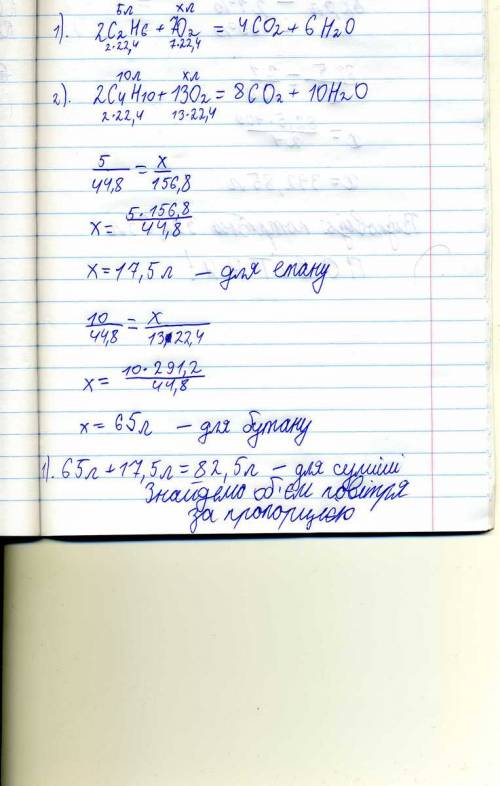 5л хл
1). 2C₂H₆ + 7O₂ = 4CO₂ + 6H₂O
2·22,4 7·22,4
10л хл
2). 2C₄H₁₀ + 13O₂ = 8CO₂ + 10H₂O
2·22,4 13·22,4
5/44,8 = x/156,8
x = 5·156,8/44,8
x = 17,5л – для етану
10/44,8 = x/13·22,4
x = 10·291,2/44,8
x = 65л – для бутану
1). 65л + 17,5л = 82,5л – для суміші
Знайдемо об'єм повітря
за пропорцією